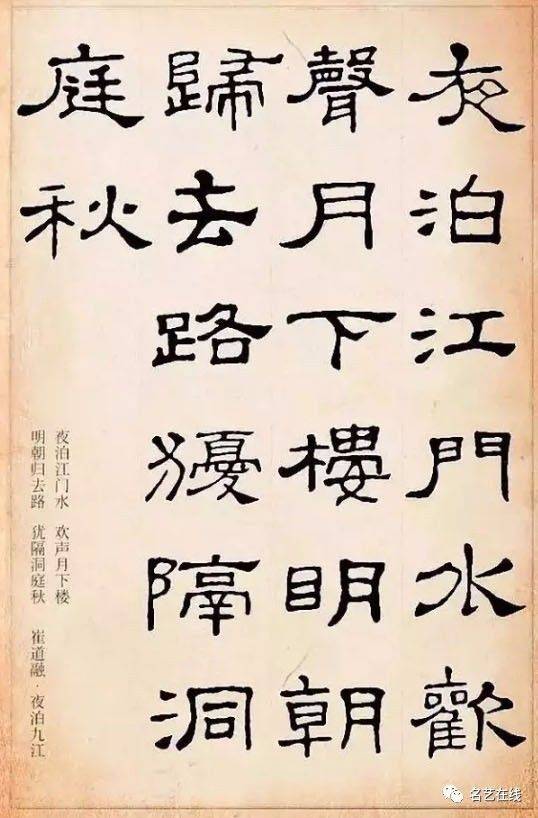 夜泊江門水歡
聲月下樓明朝
歸去路猶隔洞
庭秋
夜泊江门水 欢声月下楼
明朝归去路 犹隔洞庭秋 崔道融·夜泊九江
名艺在线